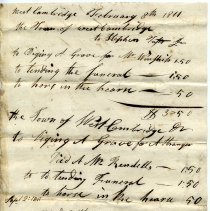 West Cambridge February 8th 1811
the Town of West Cambridge
to Stephen Dr
to Diging A Grave for Mr 1.50
to tending the funeral — 1.50
to hors in the hearn — 50
$ 3.50
the Town of West Cambridge Dr
to Diging A Grave for A Stranger
Died A Mr Kendells — 1.50
to tending Funeral — 1.50
to hors in the hearn 50